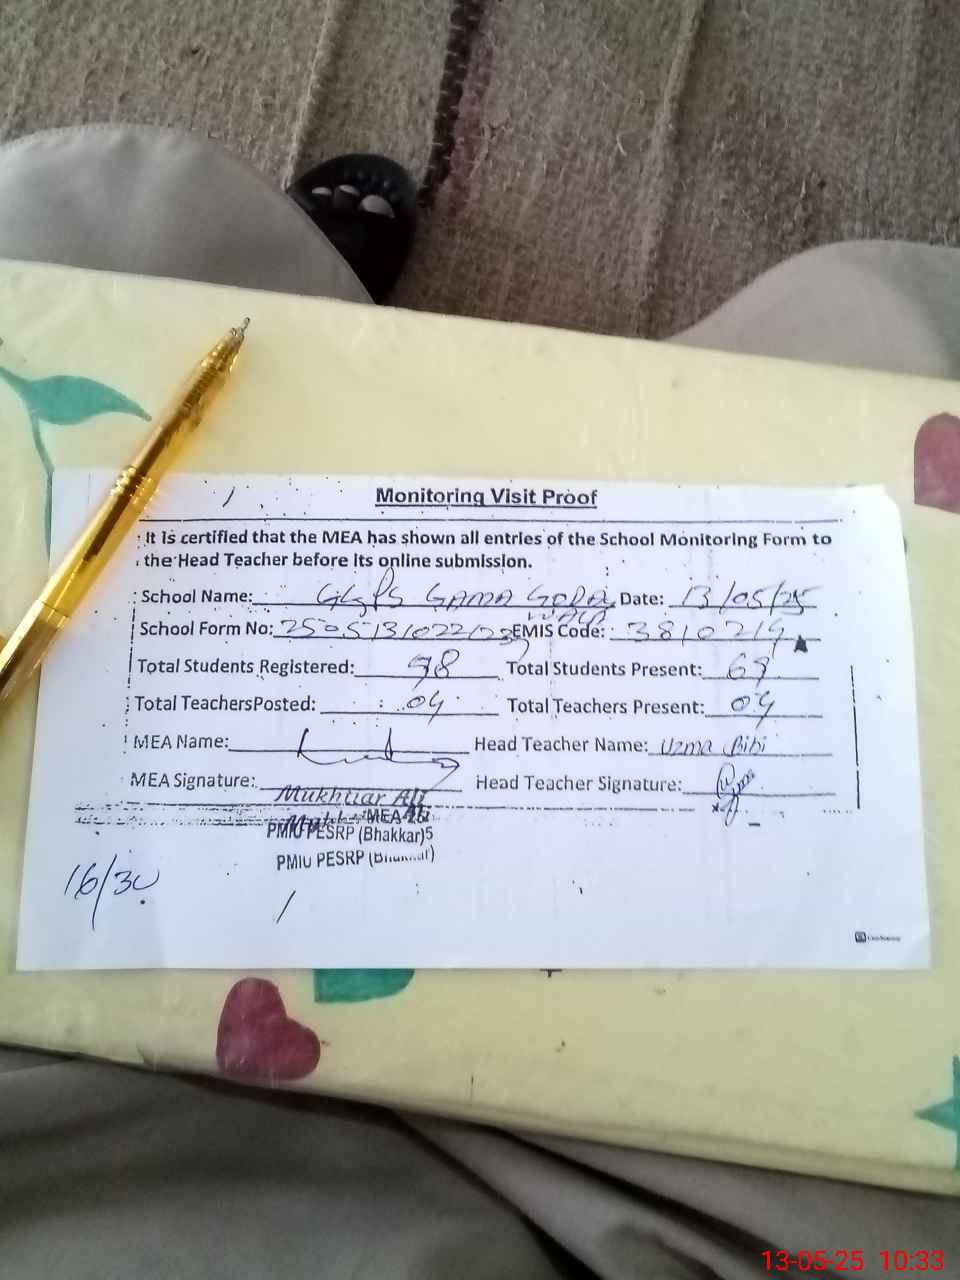 Monitoring Visit Proof
It is certified that the MEA has shown all entries of the School Monitoring Form to
the Head Teacher before its online submission.
School Name: GGPS GAMA Date: 13/05/25
School Form No: EMIS Code: 3810214
Total Students Registered: 98 Total Students Present: 69
Total TeachersPosted: 04 Total Teachers Present: 04
MEA Name: Head Teacher Name: Uzma Bibi
MEA Signature: Head Teacher Signature:
Mukhtiar Ali
MEA
PMIU PESRP (Bhakkar)5
PMIU PESRP (Bhakkar)
16/30
13-05-25 10:33